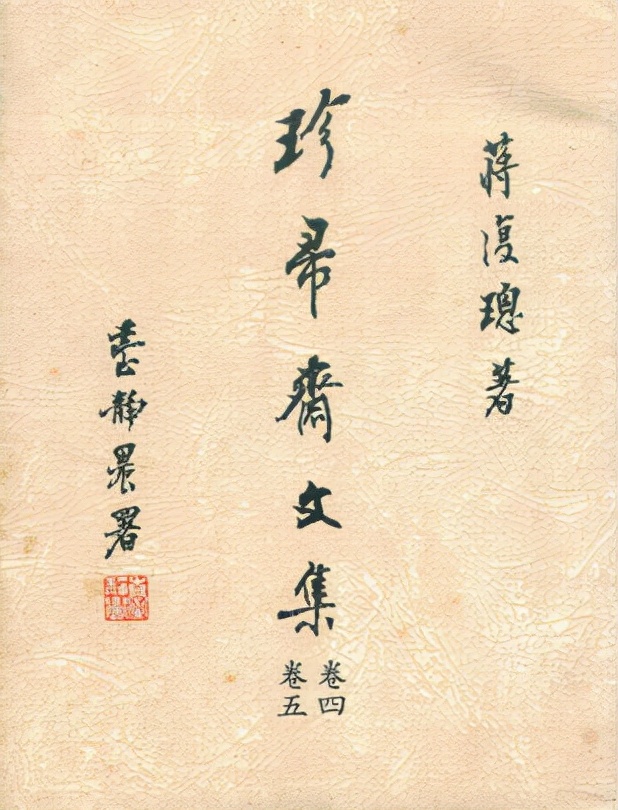 蔣復璁著
珍帚齋文集
卷四
卷五
臺靜農署